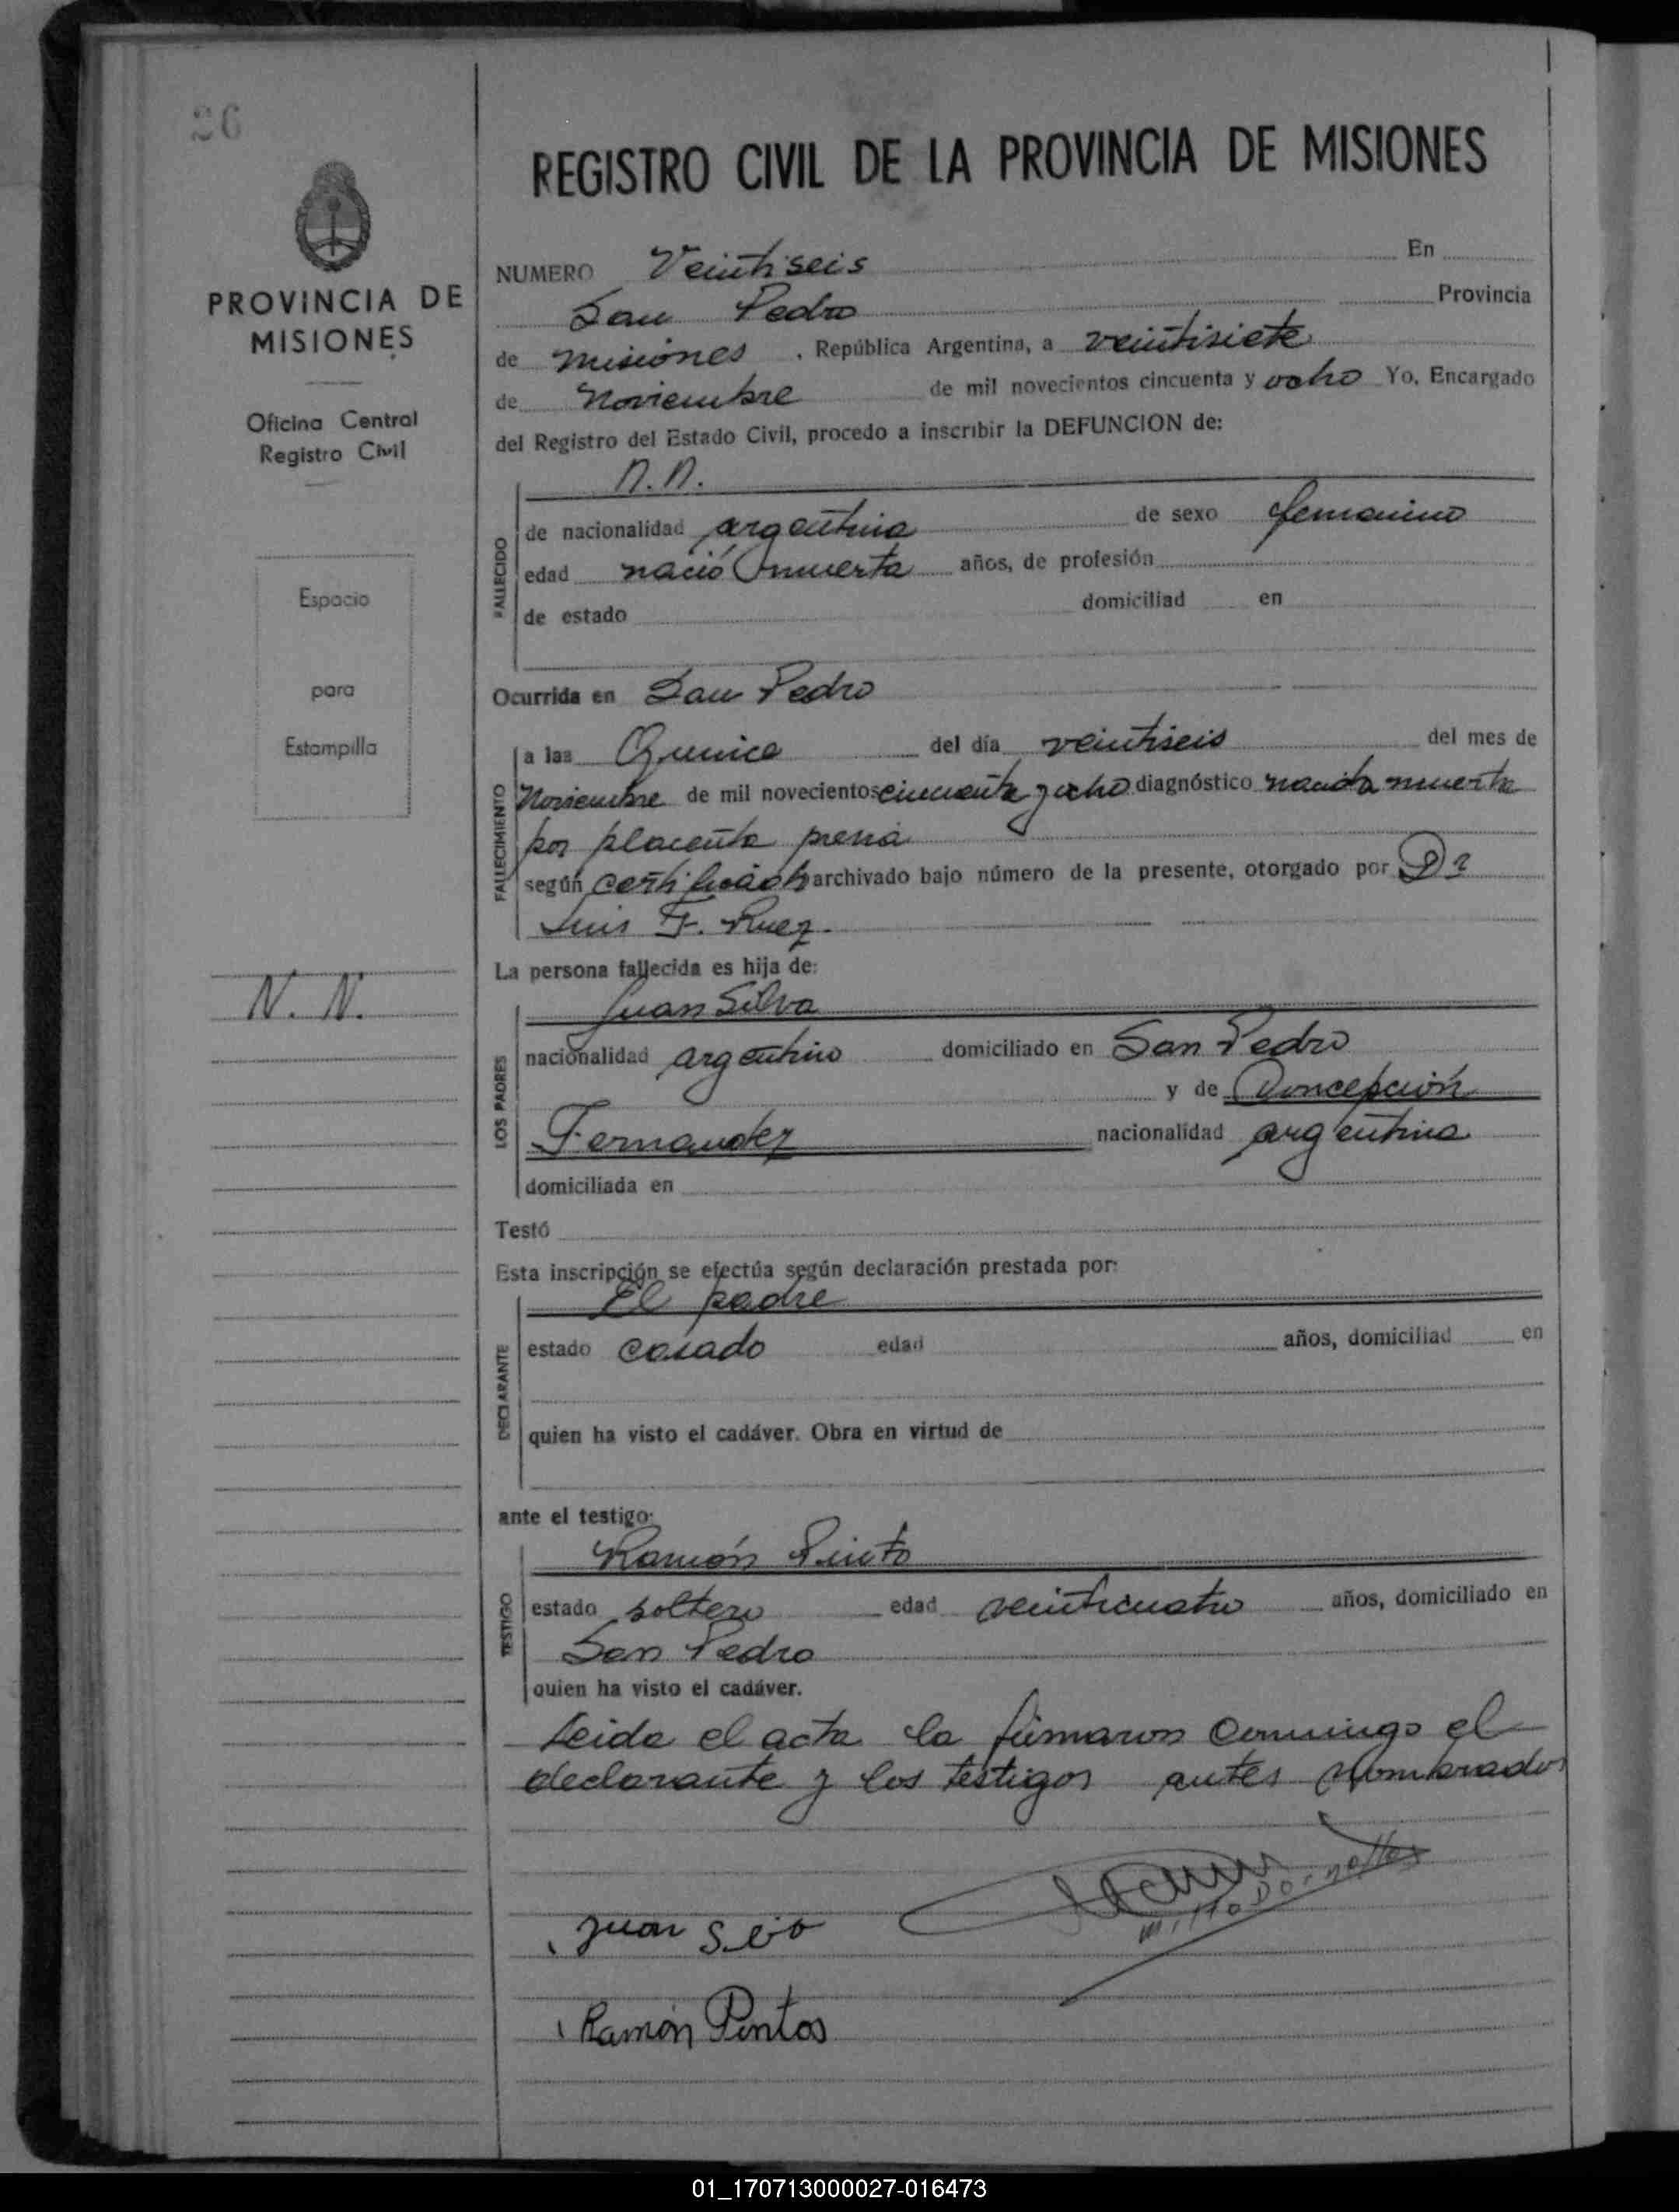 26
PROVINCIA DE
MISIONES
Oficina Central
Registro Civil
Espacio
para
Estampilla
N. N.
REGISTRO CIVIL DE LA PROVINCIA DE MISIONES
NUMERO Veintiseis En
San Pedro Provincia
de Misiones , República Argentina, a veintisiete
de Noviembre de mil novecientos cincuenta y ocho Yo, Encargado
del Registro del Estado Civil, procedo a inscribir la DEFUNCION de:
N.N.
FALLECIDO
de nacionalidad argentina de sexo femenino
edad nació muerta años, de profesión
de estado domiciliad en
Ocurrida en San Pedro
FALLECIMIENTO
a las Quince del día veintiseis del mes de
Noviembre de mil novecientos cincuenta y ocho diagnóstico nacida muerta
por placenta previa
según certificado archivado bajo número de la presente, otorgado por Dr
Luis F. Ruez.
La persona fallecida es hija de:
Juan Silva
LOS PADRES
nacionalidad argentino domiciliado en San Pedro
y de Concepción
Fernandez nacionalidad argentina
domiciliada en
Testó
Esta inscripción se efectúa según declaración prestada por:
El padre
DECLARANTE
estado casado edad años, domiciliad en
quien ha visto el cadáver. Obra en virtud de
ante el testigo:
Ramón Pinto
TESTIGO
estado soltero edad veinticuatro años, domiciliado en
San Pedro
quien ha visto el cadáver.
Leida el acta la firmaron conmigo el
declarante y los testigos antes nombrados
Juan Silva
Ramón Pintos
01_170713000027-016473